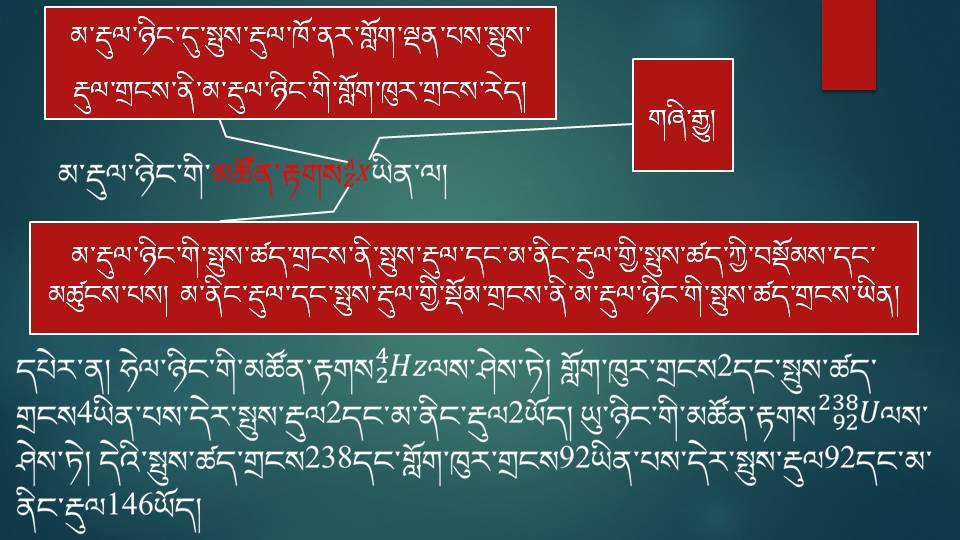 མ་རྡུལ་ཉིང་དུ་སྤུས་རྡུལ་ཁོ་ནར་གློག་ལྡན་པས་སྤུས་
རྡུལ་གྲངས་ནི་མ་རྡུལ་ཉིང་གི་གློག་ཁུར་གྲངས་རེད།
གཞི་རྒྱུ།
མ་རྡུལ་ཉིང་གི་མཚོན་རྟགས$^{A}_{Z}x$ཡིན་ལ།
མ་རྡུལ་ཉིང་གི་སྤུས་ཚད་གྲངས་ནི་སྤུས་རྡུལ་དང་མ་ནིང་རྡུལ་གྱི་སྤུས་ཚད་ཀྱི་བསྡོམས་དང་
མཚུངས་པས། མ་ནིང་རྡུལ་དང་སྤུས་རྡུལ་གྱི་སྡོམ་གྲངས་ནི་མ་རྡུལ་ཉིང་གི་སྤུས་ཚད་གྲངས་ཡིན།
དཔེར་ན། ཧེལ་ཉིང་གི་མཚོན་རྟགས$^{4}_{2}Hz$ལས་ཤེས་ཏེ། གློག་ཁུར་གྲངས2དང་སྤུས་ཚད་
གྲངས4ཡིན་པས་དེར་སྤུས་རྡུལ2དང་མ་ནིང་རྡུལ2ཡོད། ཡུ་ཉིང་གི་མཚོན་རྟགས$^{238}_{92}U$ལས་
ཤེས་ཏེ། དེའི་སྤུས་ཚད་གྲངས238དང་གློག་ཁུར་གྲངས92ཡིན་པས་དེར་སྤུས་རྡུལ92དང་མ་
ནིང་རྡུལ146ཡོད།